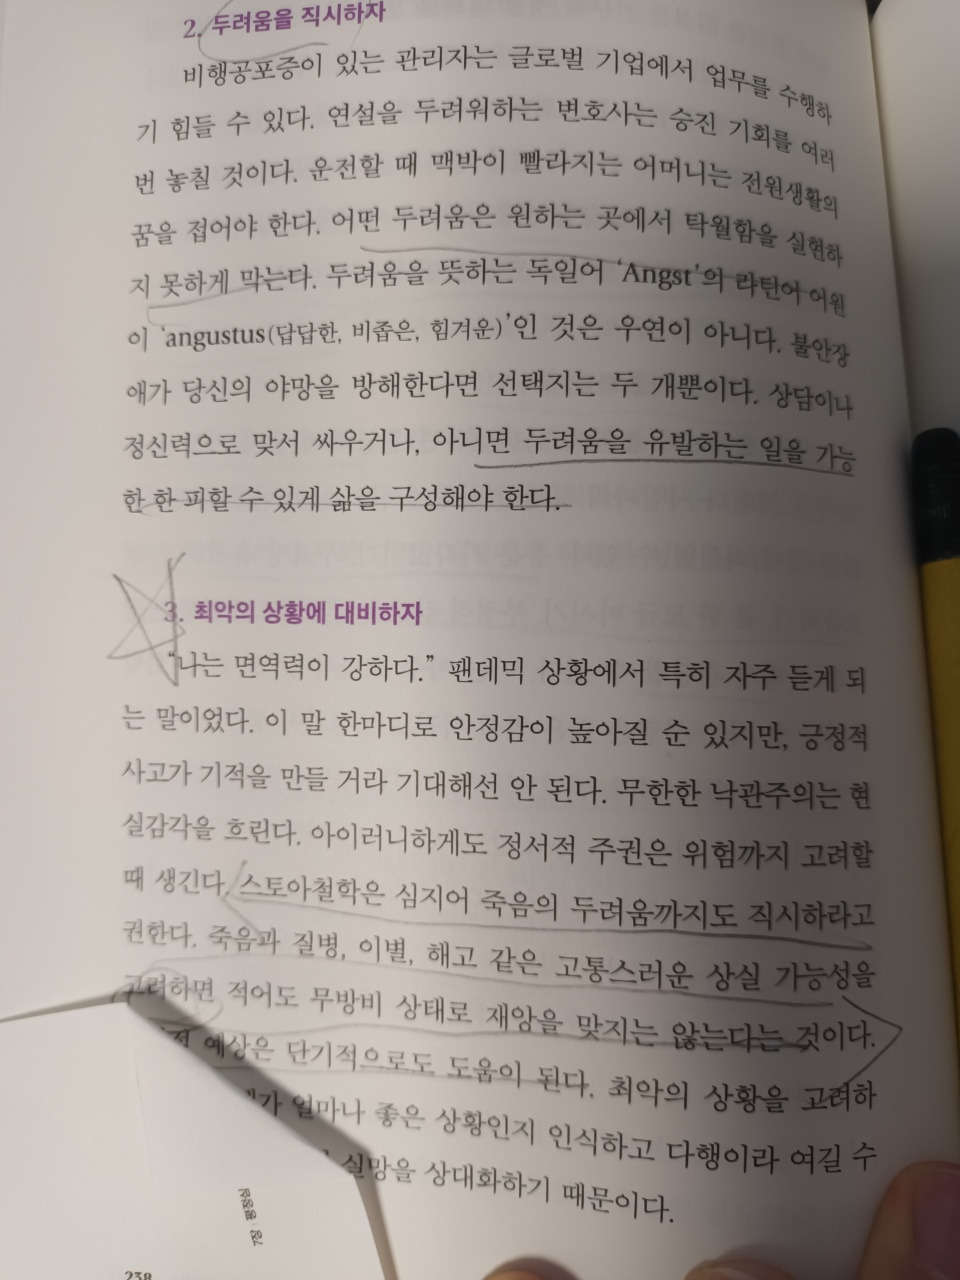 2. 두려움을 직시하자
비행공포증이 있는 관리자는 글로벌 기업에서 업무를 수행하
기 힘들 수 있다. 연설을 두려워하는 변호사는 승진 기회를 여러
번 놓칠 것이다. 운전할 때 맥박이 빨라지는 어머니는 전원생활의
꿈을 접어야 한다. 어떤 두려움은 원하는 곳에서 탁월함을 실현하
지 못하게 막는다. 두려움을 뜻하는 독일어 ‘Angst’의 라틴어 어원
이 ‘angustus(답답한, 비좁은, 힘겨운)’인 것은 우연이 아니다. 불안장
애가 당신의 야망을 방해한다면 선택지는 두 개뿐이다. 상담이나
정신력으로 맞서 싸우거나, 아니면 두려움을 유발하는 일을 가능
한 한 피할 수 있게 삶을 구성해야 한다.
3. 최악의 상황에 대비하자
“나는 면역력이 강하다.” 팬데믹 상황에서 특히 자주 듣게 되
는 말이었다. 이 말 한마디로 안정감이 높아질 순 있지만, 긍정적
사고가 기적을 만들 거라 기대해선 안 된다. 무한한 낙관주의는 현
실감각을 흐린다. 아이러니하게도 정서적 주권은 위험까지 고려할
때 생긴다. 스토아철학은 심지어 죽음의 두려움까지도 직시하라고
권한다. 죽음과 질병, 이별, 해고 같은 고통스러운 상실 가능성을
고려하면 적어도 무방비 상태로 재앙을 맞지는 않는다는 것이다.
예상은 단기적으로도 도움이 된다. 최악의 상황을 고려하
얼마나 좋은 상황인지 인식하고 다행이라 여길 수
실망을 상대화하기 때문이다.
238